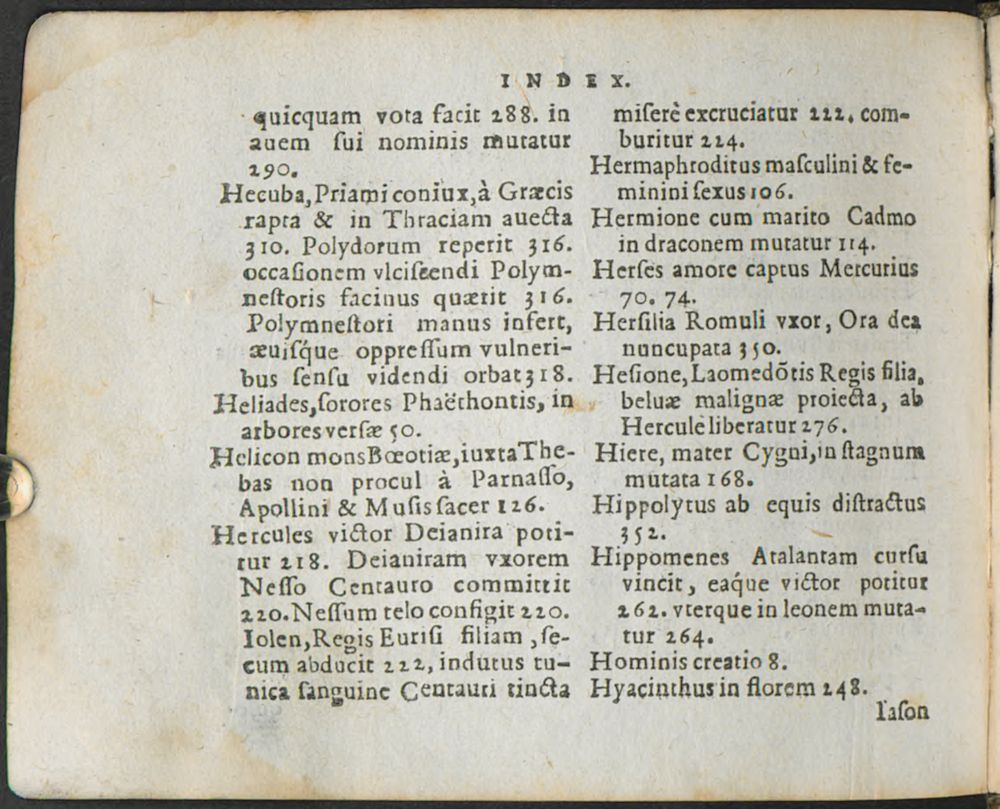 INDEX.
quicquam vota facit 288. in
auem ſui nominis mutatur
290.
Hecuba, Priami coniux, à Græcis
rapta & in Thraciam auecta
310. Polydorum reperit 316.
occaſionem vlciſcendi Polym-
neſtoris facinus quærit 316.
Polymneſtori manus infert,
æuiſq́ue oppreſſum vulneri-
bus ſenſu videndi orbat 318.
Heliades, ſorores Phaëthontis, in
arbores verſæ 50.
Helicon mons Bœotiæ, iuxta The-
bas non procul à Parnaſſo,
Apollini & Muſis ſacer 126.
Hercules victor Deianira poti-
tur 218. Deianiram vxorem
Neſſo Centauro committit
220. Neſſum telo configit 220.
Iolen, Regis Euriſi filiam, ſe-
cum abducit 222, indutus tu-
nica ſanguine Centauri tincta
miſerè excruciatur 222. com-
buritur 224.
Hermaphroditus maſculini & fe-
minini ſexus 106.
Hermione cum marito Cadmo
in draconem mutatur 114.
Herſes amore captus Mercurius
70. 74.
Herſilia Romuli vxor, Ora dea
nuncupata 350.
Heſione, Laomedõtis Regis filia,
beluæ malignæ proiecta, ab
Hercule liberatur 276.
Hiere, mater Cygni, in ſtagnum
mutata 168.
Hippolytus ab equis diſtractus
352.
Hippomenes Atalantam curſu
vincit, eaq́ue victor potitur
262. vterque in leonem muta-
tur 264.
Hominis creatio 8.
Hyacinthus in florem 248.
Iaſon